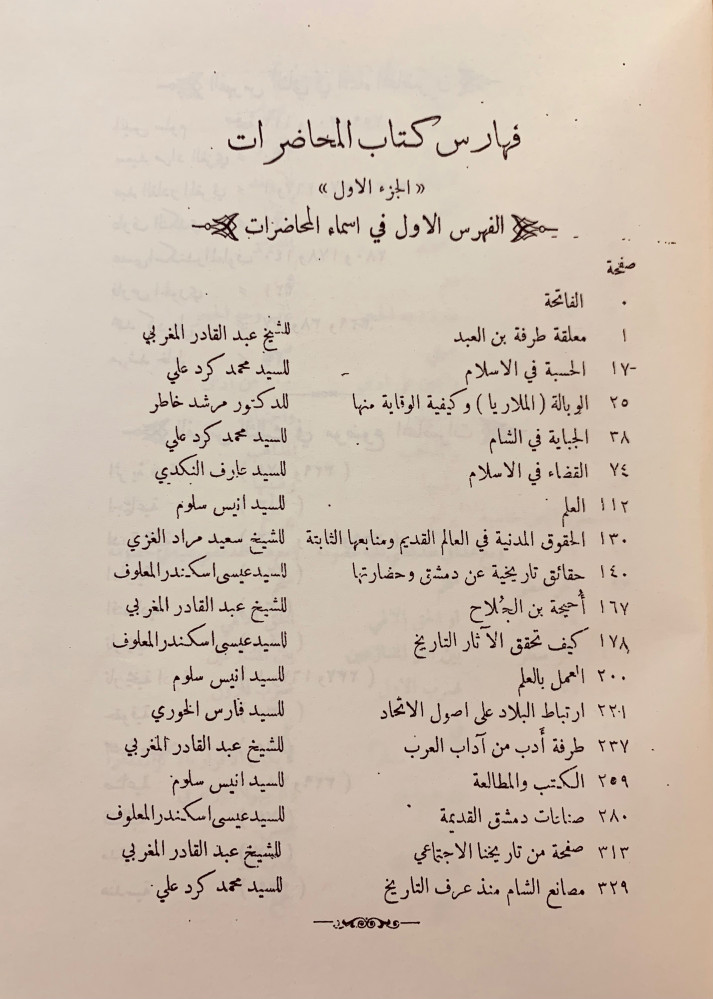 فهارس كتاب المحاضرات
«الجزء الاول»
الفهرس الاول في اسماء المحاضرات
صفحة
٠ الفاتحة
١ معلقة طرفة بن العبد للشيخ عبد القادر المغربي
١٧ الحسبة في الاسلام للسيد محمد كرد علي
٢٥ الوبالة (الملاريا) وكيفية الوقاية منها للدكتور مرشد خاطر
٣٨ الجباية في الشام للسيد محمد كرد علي
٧٤ القضاء في الاسلام للسيد عارف النكدي
١١٢ العلم للسيد انيس سلوم
١٣٠ الحقوق المدنية في العالم القديم ومنابعها الثابتة للشيخ سعيد مراد الغزي
١٤٠ حقائق تاريخية عن دمشق وحضارتها للسيد عيسى اسكندر المعلوف
١٦٧ أُحيحة بن الجُلاح للشيخ عبد القادر المغربي
١٧٨ كيف تحقق الآثار التاريخ للسيد عيسى اسكندر المعلوف
٢٠٠ العمل بالعلم للسيد انيس سلوم
٢٢١ ارتباط البلاد على اصول الاتحاد للسيد فارس الخوري
٢٣٧ طرفة أدب من آداب العرب للشيخ عبد القادر المغربي
٢٥٩ الكتب والمطالعة للسيد انيس سلوم
٢٨٠ صناعات دمشق القديمة للسيد عيسى اسكندر المعلوف
٣١٣ صفحة من تاريخنا الاجتماعي للشيخ عبد القادر المغربي
٣٢٩ مصانع الشام منذ عرف التاريخ للسيد محمد كرد علي